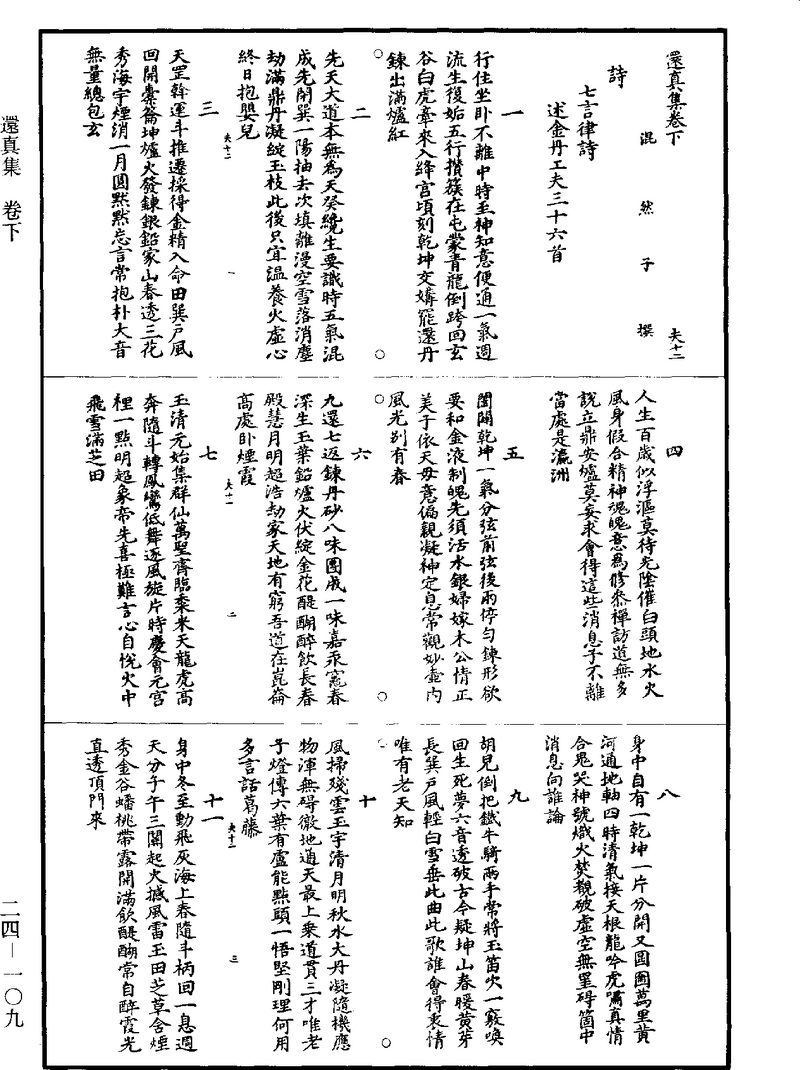 還真集 卷下
二四—一〇九
還真集卷下
夫十二
混然子撰
詩
七言律詩
述金丹工夫三十六首
一
行住坐卧不離中時至神知意便通一氣週
流生復始五行攢簇在屯蒙青龍倒跨回玄
谷白虎牽來入絳宫頃刻乾坤交媾罷還丹
鍊出滿爐紅
二
先天大道本無為天癸纔生要識時五氣混
成先開巽一陽抽去次填離漫空雪落消塵
劫滿鼎丹凝綻玉枝此後只宜温養火虛心
終日抱嬰兒
三
夫十二
一
天罡斡運斗推遷採得金精入命田巽戶風
回開橐籥坤爐火發鍊銀鉛家山春透三花
秀海宇煙消一月圓默默忘言常抱朴大音
無量總包玄
四
人生百歲似浮漚莫待光陰催白頭地水火
風身假合精神魂魄意為修叅禪訪道無多
說立鼎安爐莫妄求會得這些消息子不離
當處是瀛洲
五
闔闢乾坤一氣分弦前弦後兩停勻鍊形欲
要和金液制魄先須活水銀婦嫁木公情正
美子依天母意偏親凝神定息常觀妙壺内
風光别有春
六
九還七返鍊丹砂八味團成一味嘉汞竈春
深生玉葉鉛爐火伏綻金花醍醐醉飲長春
殿慧月明超浩劫家天地有窮吾道在崑崙
高處卧煙霞
七
夫十一
二
玉清元始集群仙萬聖齊臨黍米天龍虎高
奔隨斗轉鳳鸞低舞逐風旋片時慶會元宫
裡一點明超象帝先喜極難言心自悅火中
飛雪滿芝田
八
身中自有一乾坤一片分開又圓圇萬里黄
河通地軸四時清氣接天根龍吟虎嘯真情
合鬼哭神號熾火焚覷破虛空無罣碍箇中
消息向誰論
九
胡兒倒把鐵牛騎兩手常將玉笛吹一竅唤
回生死夢六音透破古今疑坤山春暖黄芽
長巽戶風輕白雪垂此曲此歌誰會得衷情
唯有老天知
十
風掃殘雲玉宇清月明秋水大丹凝隨機應
物渾無碍徹地通天最上乗道貫三才唯老
子燈傳六葉有盧能點頭一悟堅剛理何用
多言話葛藤
十一
夫十二
三
身中冬至動飛灰海上春隨斗柄回一息週
天分子午三關起火撼風雷玉田芝草含煙
秀金谷蟠桃帶露開滿飲醍醐常自醉霞光
直透頂門來